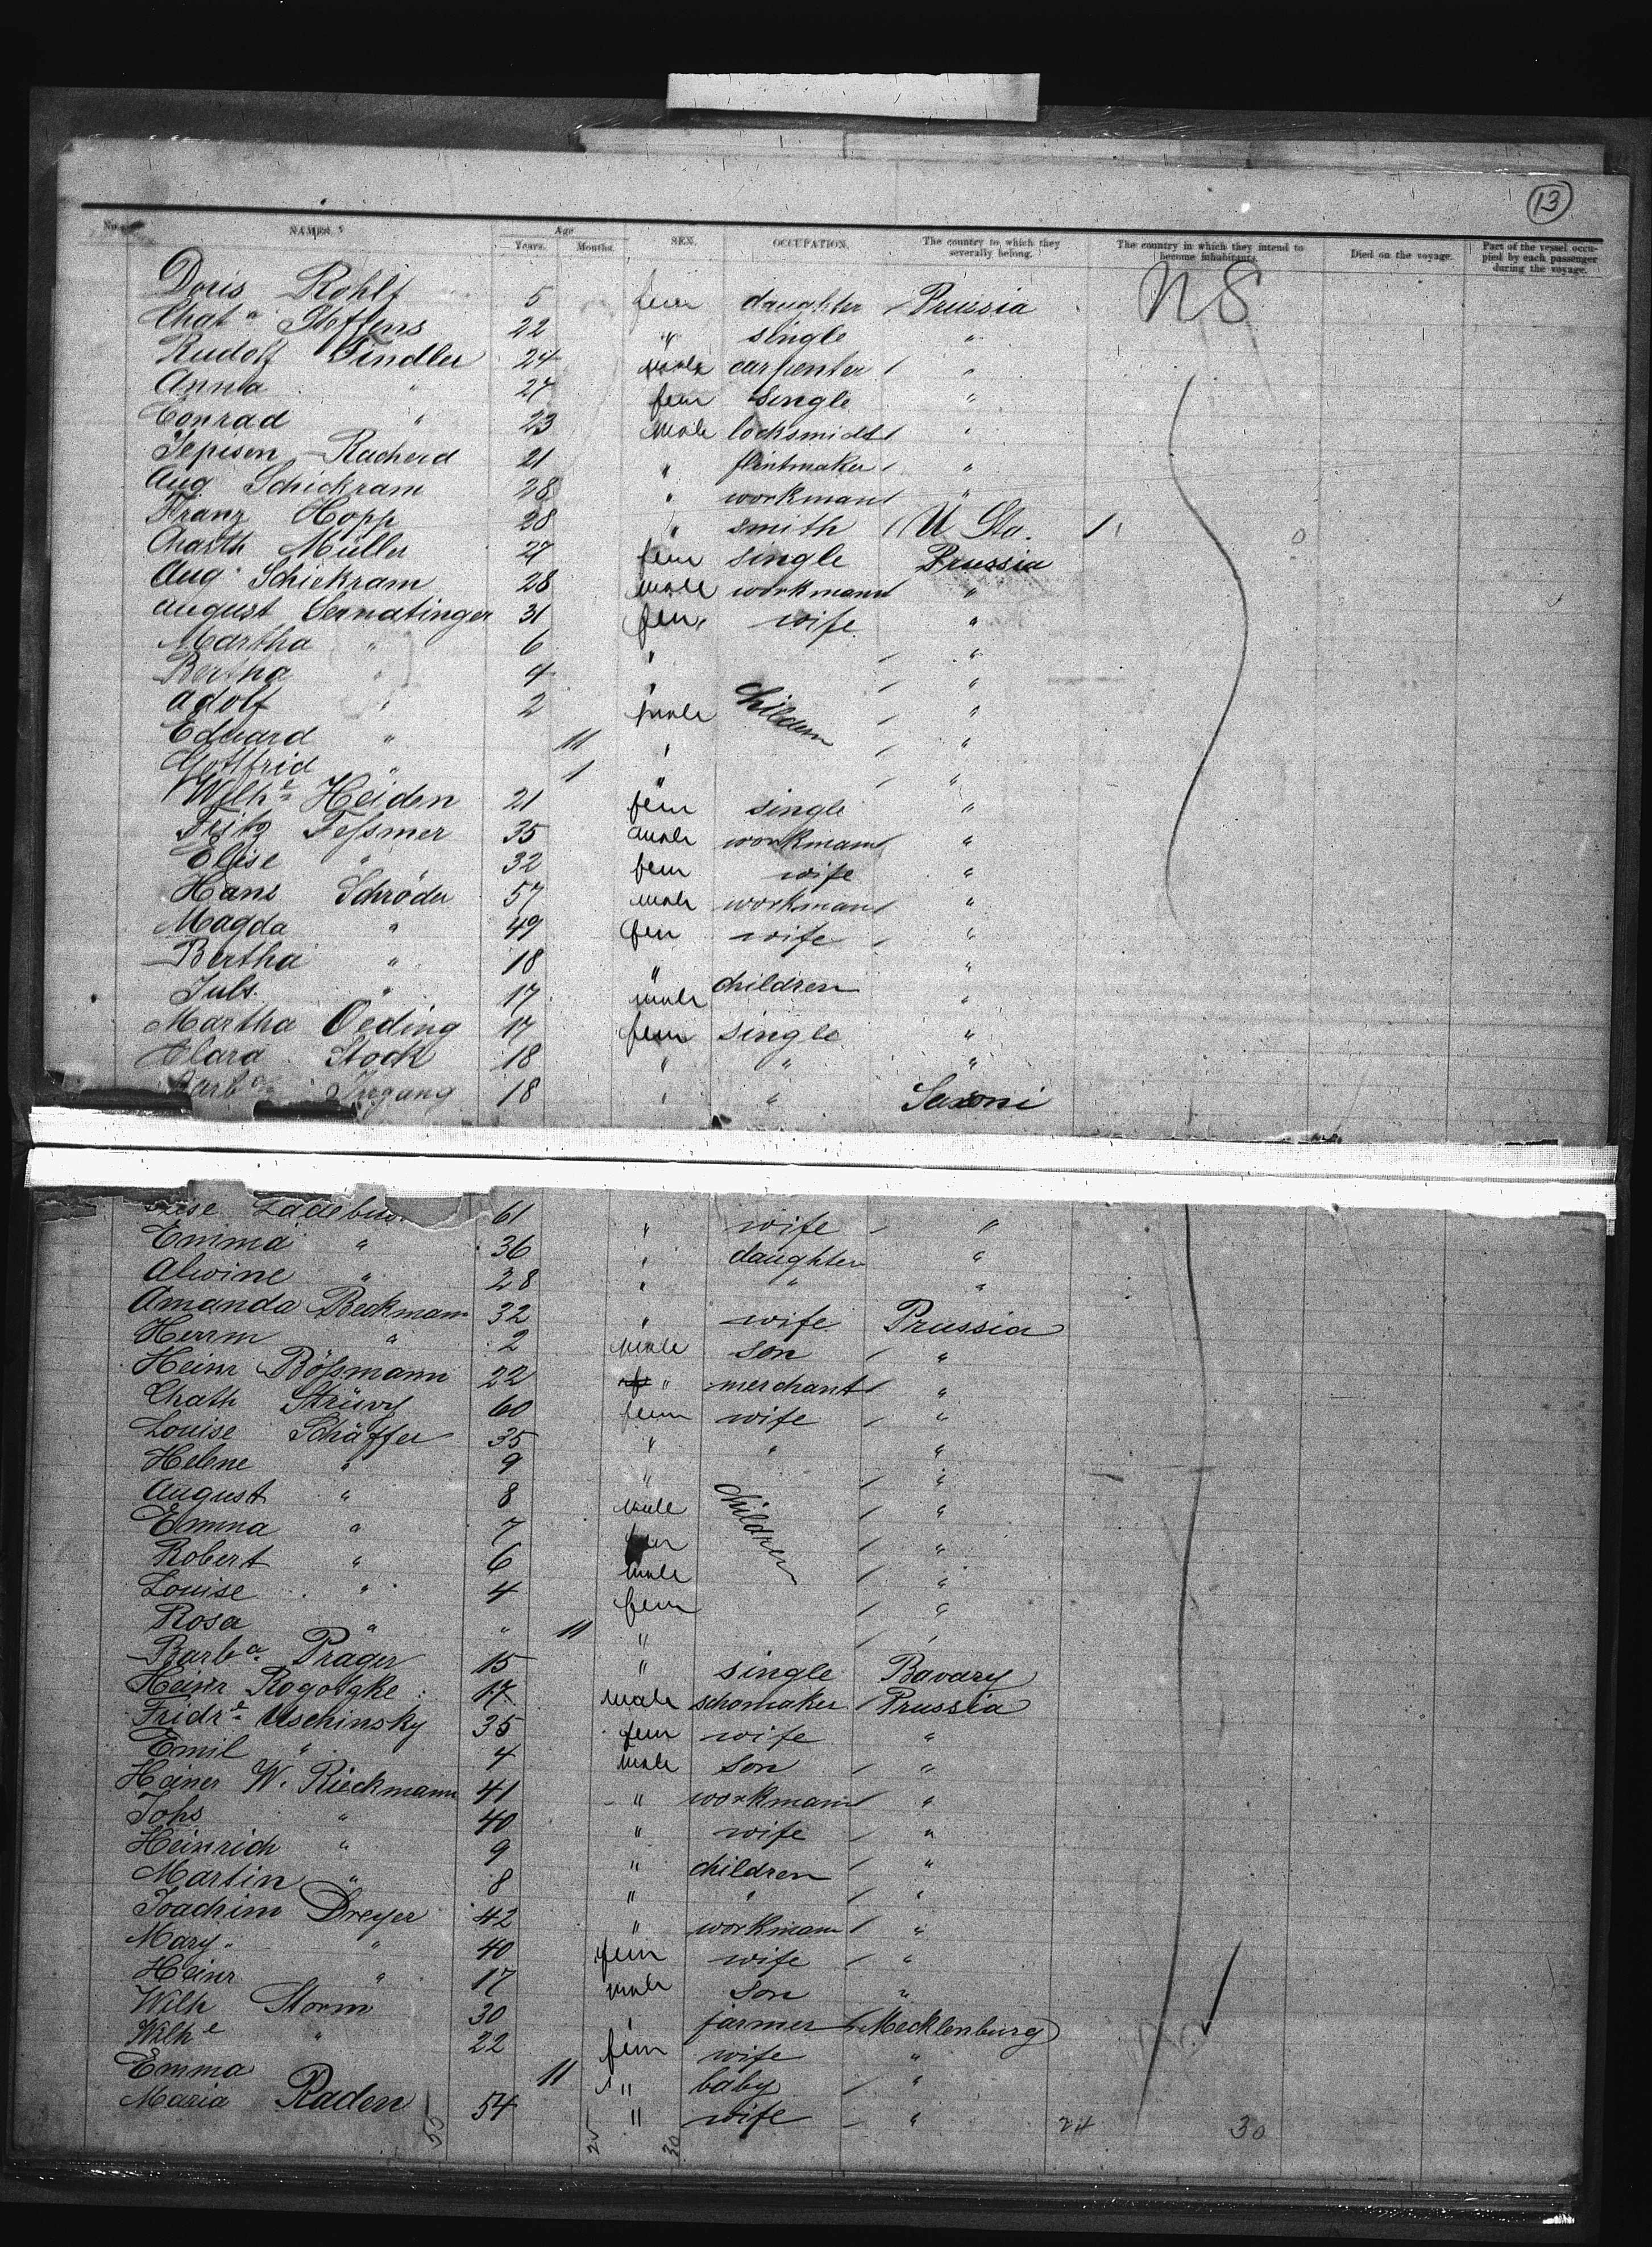 13
No. NAMES. Age Years. Months. SEX. OCCUPATION. The country to which they severally belong. The country in which they intend to become inhabitants. Died on the voyage. Part of the vessel occupied by each passenger during the voyage.
Doris Rohlf 5 fem daughter Prussia
Chata Steffens 22 " single "
Rudolf Findler 24 male carpenter "
Anna " 27 fem single "
Conrad " 23 male locksmidt "
21 " flintmaker "
Aug Schickram 28 " workman "
Franz Hopp 28 " smith U Sta.
Charth Müller 27 fem single Prussia
Aug. Schickram 28 male workmann "
August Sernatinger 31 fem. wife "
Martha " 6 " "
Bertha " 4 " "
Adolf " 2 male childern "
Eduard " 11 " "
Gottfrid " 1 " "
Wilhe Heiden 21 fem single "
Fritz Feßmer 35 male workmann "
Elise " 32 fem wife "
Hans Schröder 57 male workman "
Magda " 49 fem wife "
Bertha " 18 " children "
Juls. " 17 male "
Martha Oeding 17 fem single "
Clara Stock 18 " " "
18 " " Saxoni
61 " wife "
Emma " 36 " daughter "
Alwine " 28 " " "
Amanda Beckmann 32 " wife Prussia
Herrm " 2 male son "
Heinr Bößmann 22 " merchant "
Chath Strüvy 60 fem wife "
Louise Schäffer 35 " " "
Helene " 9 " "
August " 8 male children "
Emma " 7 fem "
Robert " 6 male "
Louise " 4 fem "
Rosa " " 11 " "
Barba Prager 15 " single Bavary
Heinr Rogotzke 17 male schomaker Prussia
Fridre Uschinsky 35 fem wife "
Emil " 4 male son "
Heiner W. Rieckmann 41 " workmann "
Johs " 40 " wife "
Heinrich " 9 " children "
Martin " 8 " " "
Joachim Dreyer 42 " workmann "
Mary. " 40 fem wife "
Heinr " 17 male son "
Wilh Storm 30 " farmer Mecklenburg
Wilhe " 22 fem wife "
Emma 11 " baby "
Maria Raden 54 " wife "
24 30